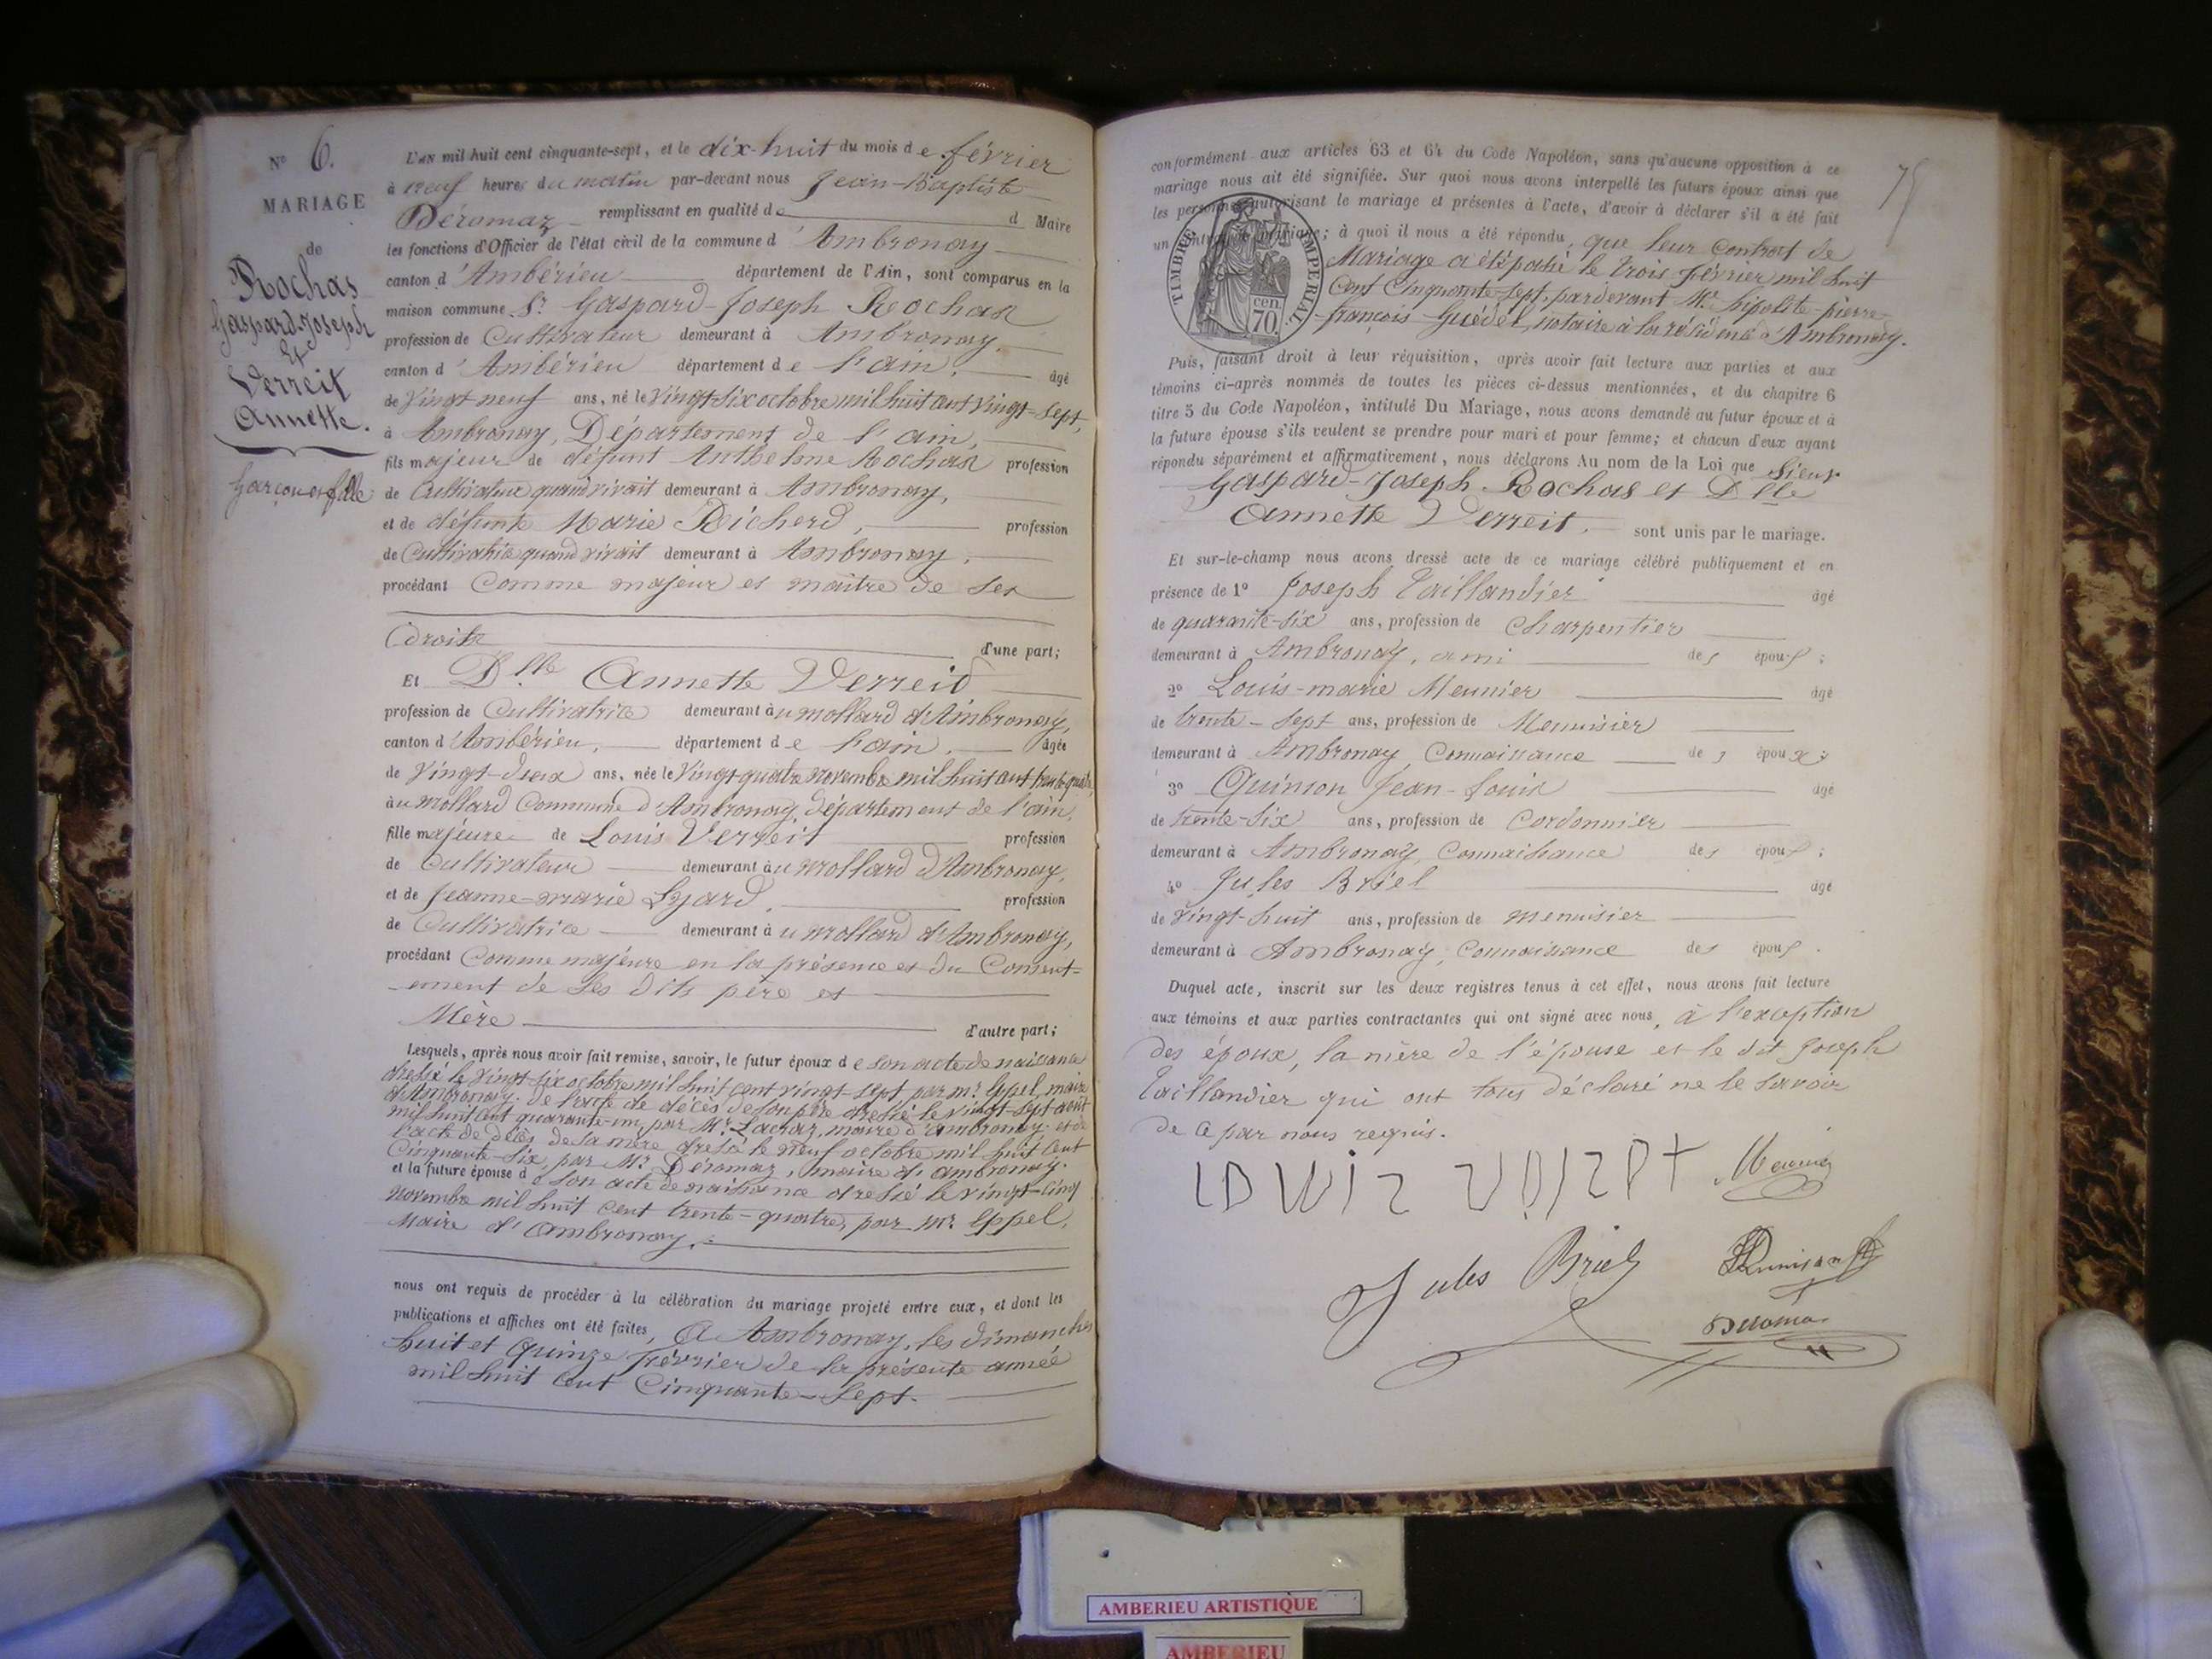 N° 6.
MARIAGE
de
Rochas
Gaspard-Joseph
Et
Verreit
Annette.
Garçon et fille
L'AN mil huit cent cinquante-sept, et le dix-huit du mois de février
à neuf heures du matin par-devant nous Jean-Baptiste
Déromaz remplissant en qualité de d Maire
les fonctions d'Officier de l'état civil de la commune d'Ambronay
canton d'Ambérieu département de l'Ain, sont comparus en la
maison commune Sr Gaspard-Joseph Rochas
profession de Cultivateur demeurant à Ambronay
canton d'Ambérieu département de l'ain, âgé
de Vingt neuf ans, né le Vingt-six octobre mil huit cent vingt-sept,
à Ambronay, Département de l'ain,
fils majeur de défunt Anthelme Rochas profession
de Cultivateur quand vivait demeurant à Ambronay,
et de défunte Marie Richerd, profession
de Cultivatrice quand vivait demeurant à Ambronay,
procédant Comme majeur et maître de ses
droits d'une part;
Et Dlle Annette Verreid
profession de Cultivatrice demeurant au mollard d'Ambronay,
canton d'Ambérieu, département de l'ain, âgée
de Vingt-deux ans, née le Vingt-quatre novembre mil huit cent trente-quatre,
au mollard Commune d'Ambronay, département de l'ain,
fille majeure de Louis Verreit profession
de Cultivateur demeurant au mollard d'Ambronay,
et de Jeanne-marie Lyard, profession
de Cultivatrice demeurant au mollard d'Ambronay,
procédant Comme majeure en la présence et du Consent=
-ement de ses dits père et
Mère d'autre part;
Lesquels, après nous avoir fait remise, savoir, le futur époux de son acte de naissance
dressé le vingt-six octobre mil huit cent vingt-sept, par mr. Eppel, maire
d'Ambronay; de l'acte de décès de son père dressé le vingt-sept août
mil huit cent quarante-un, par Mr. Lacraz, maire d'ambronay; et de
l'acte de décès de sa mère dressé le neuf octobre mil huit cent
Cinquante-six, par Mr. Déromaz, maire d'ambronay.
et la future épouse de son acte de naissance dressé le vingt-cinq
novembre mil huit cent trente-quatre, par mr. Eppel,
Maire d'Ambronay,
nous ont requis de procéder à la célébration du mariage projeté entre eux, et dont les
publications et affiches ont été faites, à Ambronay, les dimanches
huit et quinze février de la présente année
mil huit cent Cinquante-Sept.
75
conformément aux articles 63 et 64 du Code Napoléon, sans qu'aucune opposition à ce
mariage nous ait été signifiée. Sur quoi nous avons interpellé les futurs époux ainsi que
les personnes autorisant le mariage et présentes à l'acte, d'avoir à déclarer s'il a été fait
un contrat de mariage; à quoi il nous a été répondu, que leur Contrat de
Mariage a été passé le trois février mil huit
Cent Cinquante-sept, pardevant Mr. hipolite-pierre-
-françois Guédel, notaire à la résidence d'Ambronay.
TIMBRE IMPERIAL
cen.
70.
Puis, faisant droit à leur réquisition, après avoir fait lecture aux parties et aux
témoins ci-après nommés de toutes les pièces ci-dessus mentionnées, et du chapitre 6
titre 5 du Code Napoléon, intitulé Du Mariage, nous avons demandé au futur époux et à
la future épouse s'ils veulent se prendre pour mari et pour femme; et chacun d'eux ayant
répondu séparément et affirmativement, nous déclarons Au nom de la Loi que Sieur
Gaspard-Joseph Rochas et Dlle
Annette Verreit, sont unis par le mariage.
Et sur-le-champ nous avons dressé acte de ce mariage célébré publiquement et en
présence de 1° Joseph Taillandier âgé
de quarante-six ans, profession de Charpentier
demeurant à Ambronay, ami des époux;
2° Louis-marie Meunier âgé
de trente-sept ans, profession de Menuisier
demeurant à Ambronay, Connaissance des époux;
3° Quinson Jean-Louis âgé
de trente-six ans, profession de Cordonnier
demeurant à Ambronay, Connaissance des époux;
4° Jules Briel âgé
de vingt-huit ans, profession de menuisier
demeurant à Ambronay, connaissance des époux.
Duquel acte, inscrit sur les deux registres tenus à cet effet, nous avons fait lecture
aux témoins et aux parties contractantes qui ont signé avec nous, à l'exception
des époux, la mère de l'épouse et le dit Joseph
Taillandier qui ont tous déclaré ne le savoir
de ce par nous requis.
Meunier
Jules Briel
Deromaz
AMBERIEU ARTISTIQUE
AMBERIEU